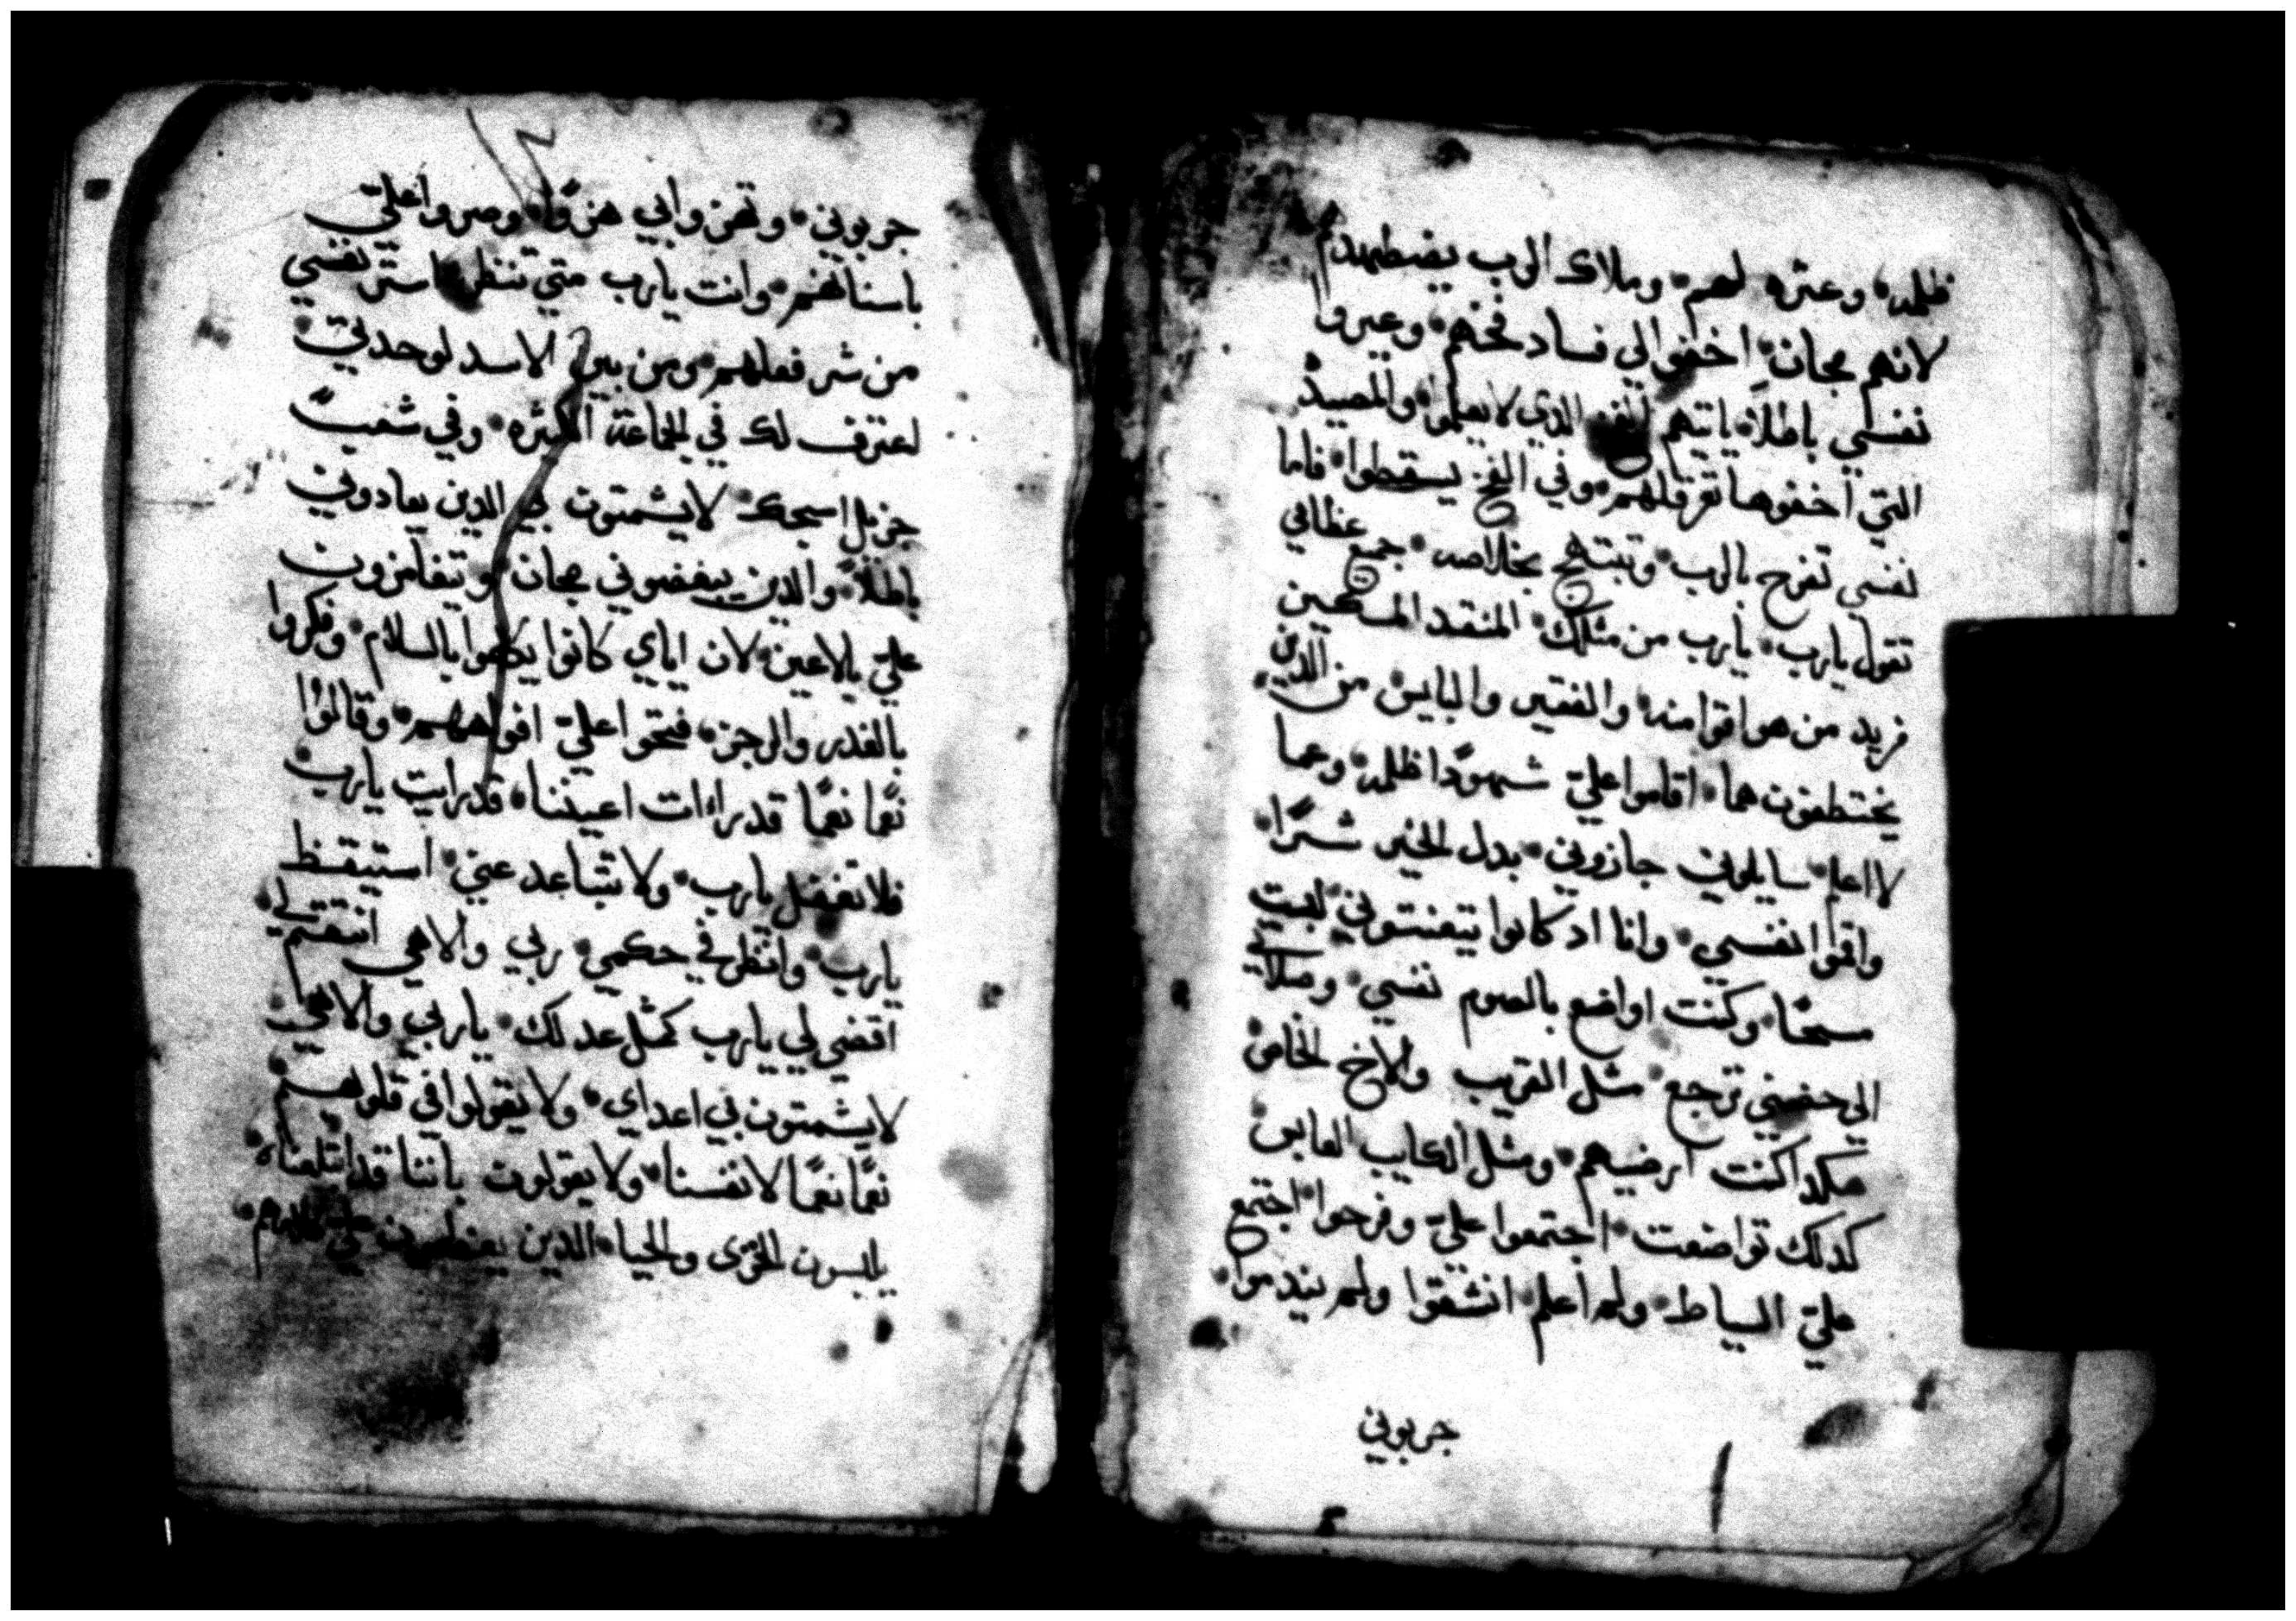 ظلمه وعثره لهم وملاك الرب يضطهدهم
لانهم مجان اخفوا لي فساد فخهم وعيروا
نفسي باطلاً ياتيهم الفخ الدي لا يعلموا والمصيده
التي اخفوها تعرقلهم وفي الفخ يسقطوا فاما
نفسي تفرح بالرب وتبتهج بخلاصه جميع عظامي
تقول يارب يارب من مثلك المنقد المسكين
من يد من هو اقوا منه والفقير والبايس من الدين
يختطفون هما اقاموا عليّ شهودًا ظلمه وعما
لا اعلم سايلوني جازوني بدل الخير شرًا
واقوا نفسي وانا اد كانوا يتعنتوني لبست
مسحًا وكنت اواضع بالصوم نفسي وصلاتي
الي حضني ترجع مثل القريب والاخ الخاص
هكدا كنت ارضيهم ومثل الكايب العابس
كدلك تواضعت اجتمعوا عليّ وفرحوا اجتمع
عليّ السياط ولم اعلم انشقوا ولم يندموا
جربوني
جربوني وتهزوا بي هزوًا وصروا عليّ
باسنانهم وانت يارب متي تنظر استر نفسي
من شر فعلهم ومن بين الاسد لوحدتي
اعترف لك في الجماعة الكثيره وفي شعب
جزيل اسبحك لا يشمتون بي الدين يعادوني
باطلاً والدين يبغضوني مجان ويتغامزون
عليّ بالاعين لان اياي كانوا يكلموا بالسلام وفكروا
بالغدر والرجز فتحوا عليّ افواههم وقالوا
نعمًا نعمًا قد راات اعيننا قد رايت يارب
فلا تغفل يارب ولا تتباعد عني استيقظ
يارب وانظر في حكمي ربي والاهي انتقم لي
اقضي لي يارب كمثل عدلك ياربي والاهي
لا يشمتون بي اعداي ولا يقولوا في قلوبهم
نعمًا نعمًا لانفسنا ولا يقولون باننا قد ابتلعناه
يلبسون الخزي والحيا الدين يعظمون علي كلامهم